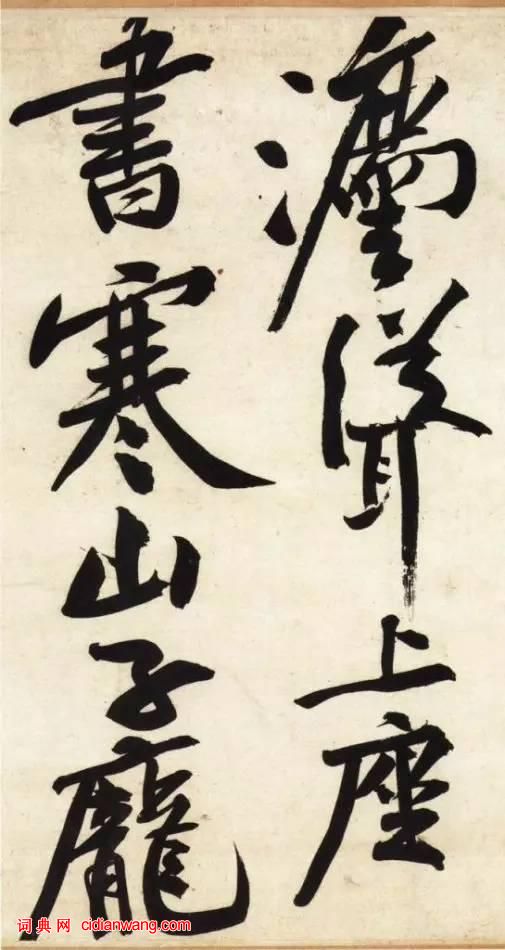 灋聳上座
書寒山子龐
词典网 cidianwang.com